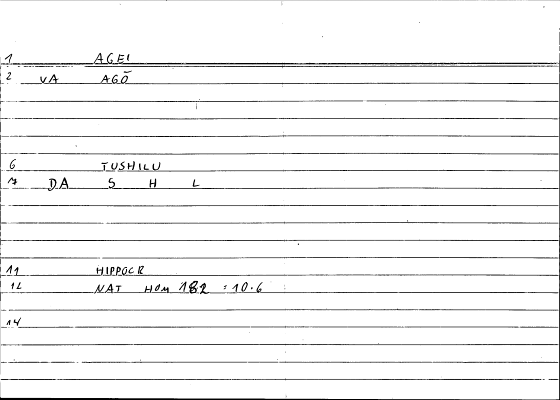 1 AGEI
2 VA AGŌ
6 TUSHILU
7 DA S H L
11 HIPPOCR
12 NAT HOM 182 : 10.6
14